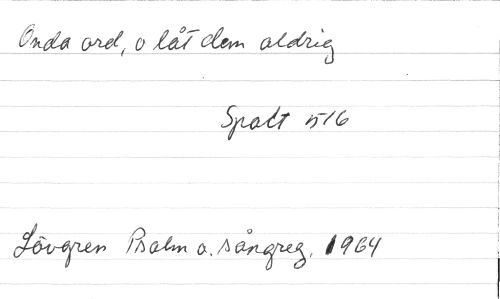 Onda ord, o låt dem aldrig
Spalt 516
Lövgren Psalm o. sångreg. 1964